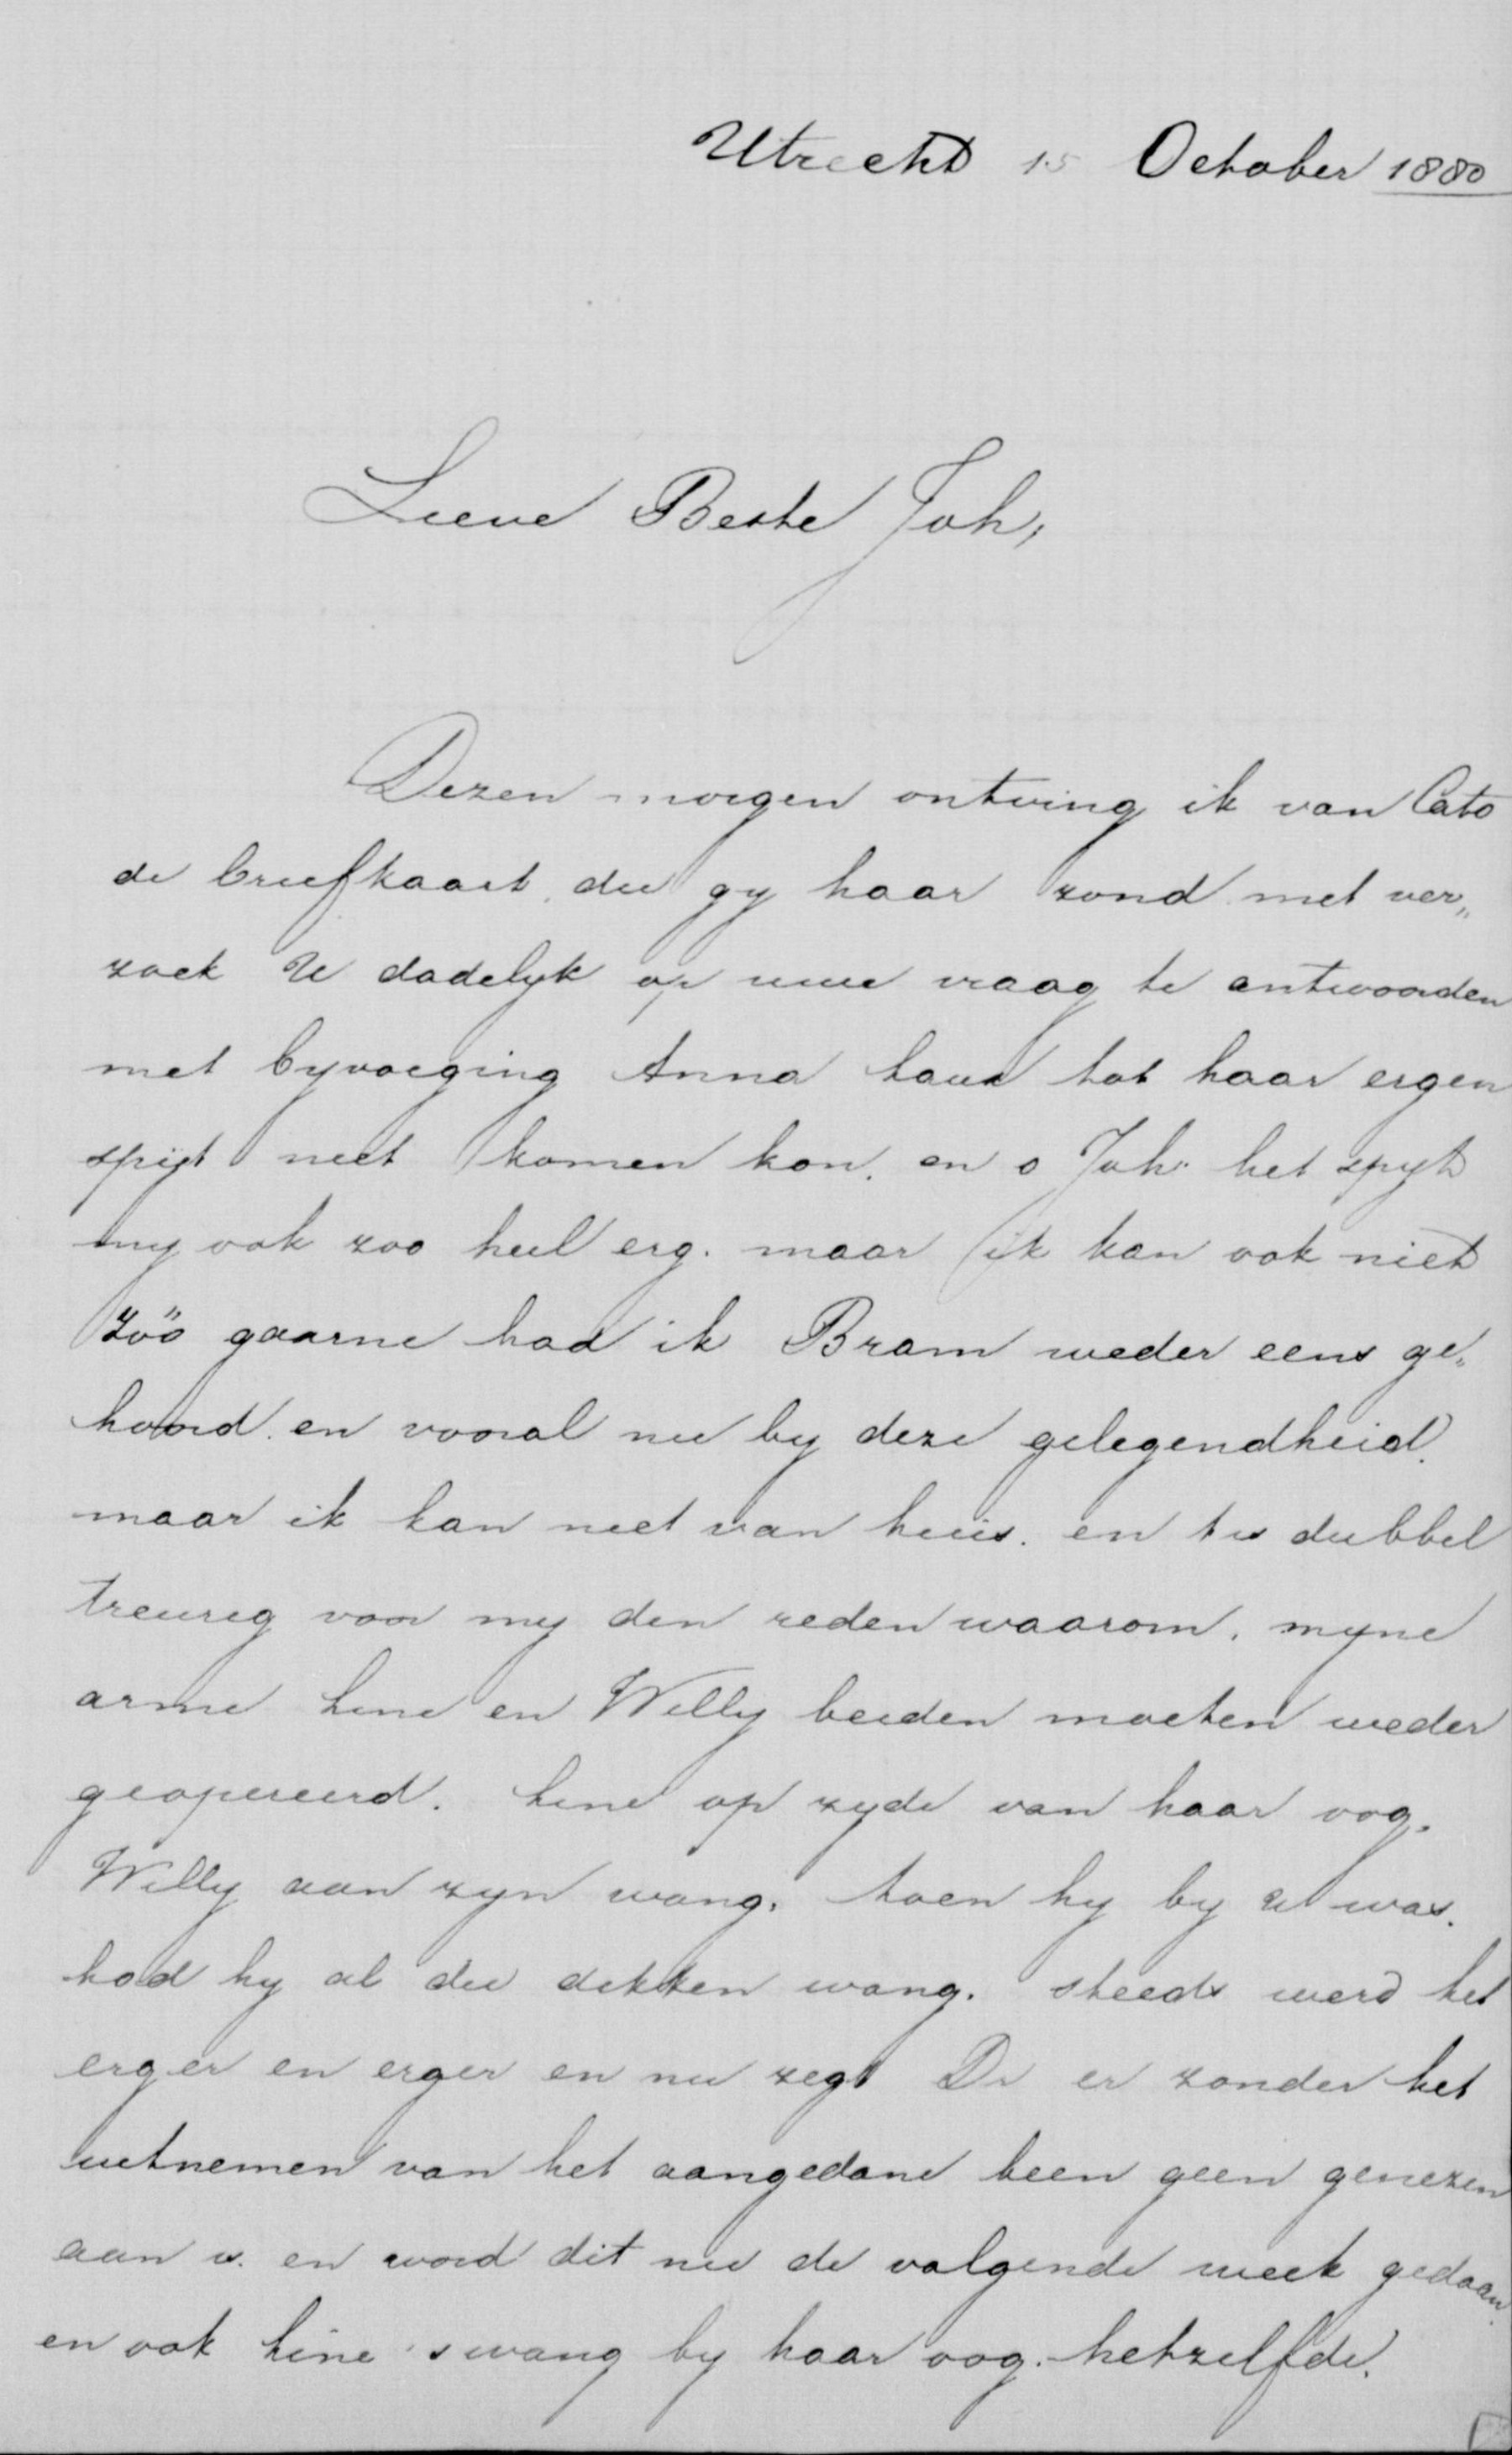 Utrecht 15 October 1880
Lieve Beste Joh,
Dezen morgen ontving ik van Cato
de briefkaart, die gy haar zond met ver„
zoek U dadelyk op uwe vraag te antwoorden
met byvoeging Anna haar tot haar ergen
spijt niet komen kon, en o Joh. het spyt
my ook zoo heel erg. maar ik kan ook niet
zóó gaarne had ik Bram weder eens ge„
hoord. en vooral nu by deze gelegendheid.
maar ik kan niet van huis. en tis dubbel
treurig voor my den reden waarom. myne
arme Line en Willy beiden moeten weder
geopereerd. Line op zyde van haar oog.
Willy aan zyn wang. toen hy by U was.
had hy al die dikken wang. steeds werd het
erger en erger en nu zegt Dr er zonder het
uitnemen van het aangedane been geen genezen
aan is. en word dit nu de volgende week gedaan
en ook Line 's wang by haar oog. hetzelfde.